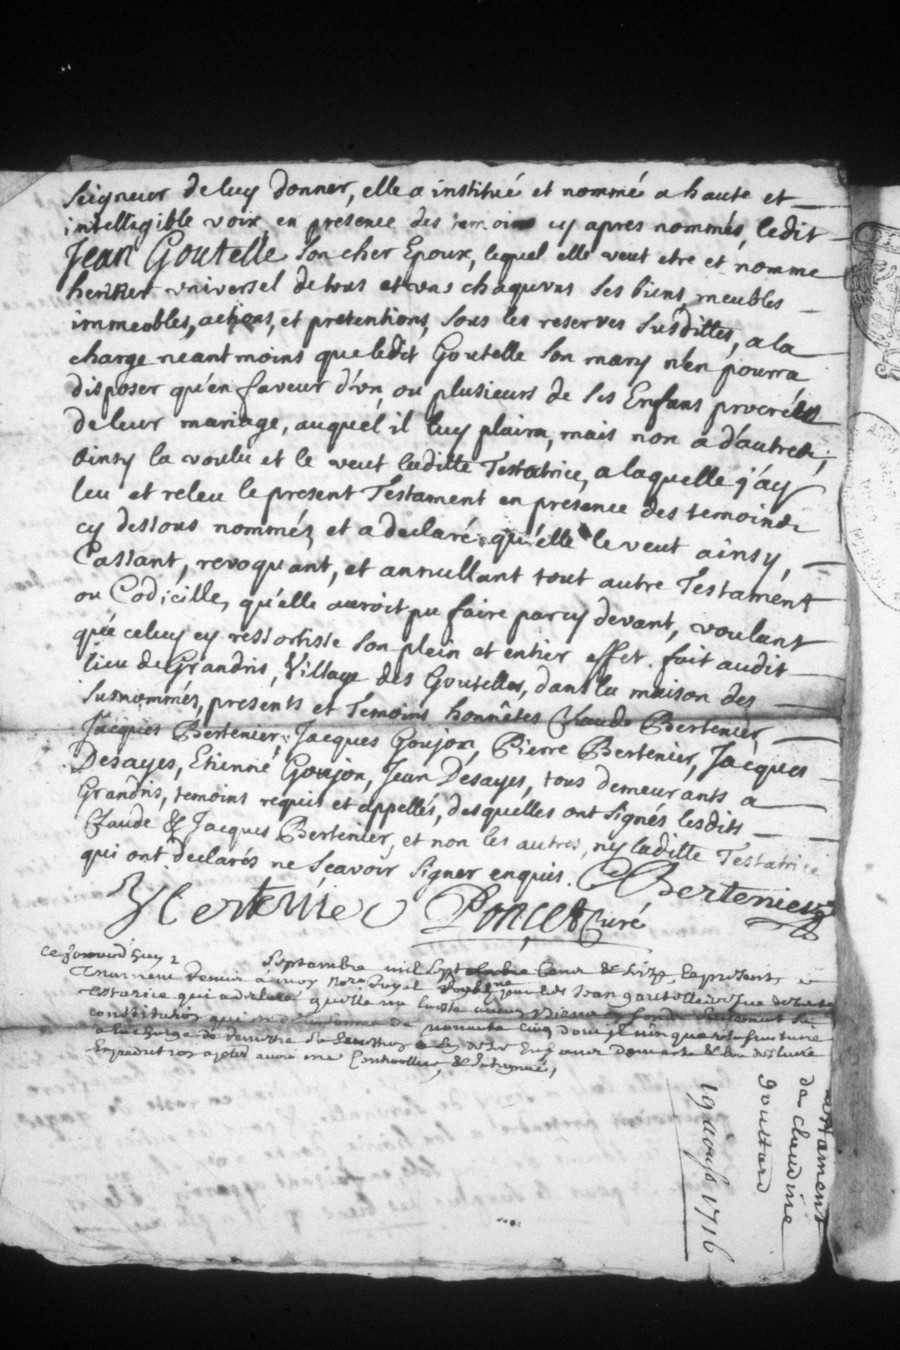 Seigneur de luy donner, elle a institué et nommé a haute et
intelligible voix, en presence des temoins cy apres nommés, ledit
Jean Goutelle son cher Epoux, lequel elle veut etre et nomme
heritier vniversel de tous et vns chaquvns ses biens, meubles
immeubles, actions, et pretentions, sous les reserves susdittes, a la
charge neantmoins que ledit Goutelle son mary n'en pourra
disposer qu'en faveur d'vn, ou plusieurs de ses Enfans procréés
de leur mariage, auquel il luy plaira, mais non a d'autres;
Ainsy la voulu et le veut laditte Testatrice, a laquelle j'ay
leu et releu le present Testament en presence des temoins
cy dessous nommés, et a declaré qu'elle le veut ainsy,
Cassant, revoquant, et annullant tout autre Testament
ou Codicille, qu'elle auroit pu faire par cy devant, voulant
que celuy cy ressortisse son plein et entier effet. fait audit
lieu de Grandris, Village des Goutelles, dans la maison des
susnommés, presents et Temoins honnêtes Claude Bertenier,
Jacques Bertenier, Jacques Goujon, Pierre Bertenier, Jacques
Desayes, Etienne Goujon, Jean Desayes, tous demeurants a
Grandris, temoins requis et appellés, desquelles ont signés lesdits
Claude & Jacques Bertenier, et non les autres, ny laditte Testatrice
qui ont declarés ne sçavoir signer enquis. C Bertenier
J Bertenier Poncet Curé
ce jourd'huy septambre mil sept la present
Jean goutelle
qui a declaré quelle
constitution somme de nonante cinq
a la charge de
testament
de Claudine
gouttard
19 aoust 1716